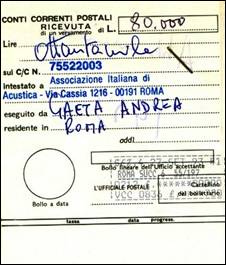 CONTI CORRENTI POSTALI
RICEVUTA
di un versamento di L. 80.000
Lire Ottantamila
sul C/C N. 75522003
Intestato a Associazione Italiana di
Acustica - Via Cassia 1216 - 00191 ROMA
eseguito da GAETA ANDREA
residente in ROMA
addì
Bollo lineare dell'Ufficio accettante
ROMA SUCC 6 55/197
L'UFFICIALE POSTALE
Cartellino
del bollettario
Bollo a data
tassa data progress.